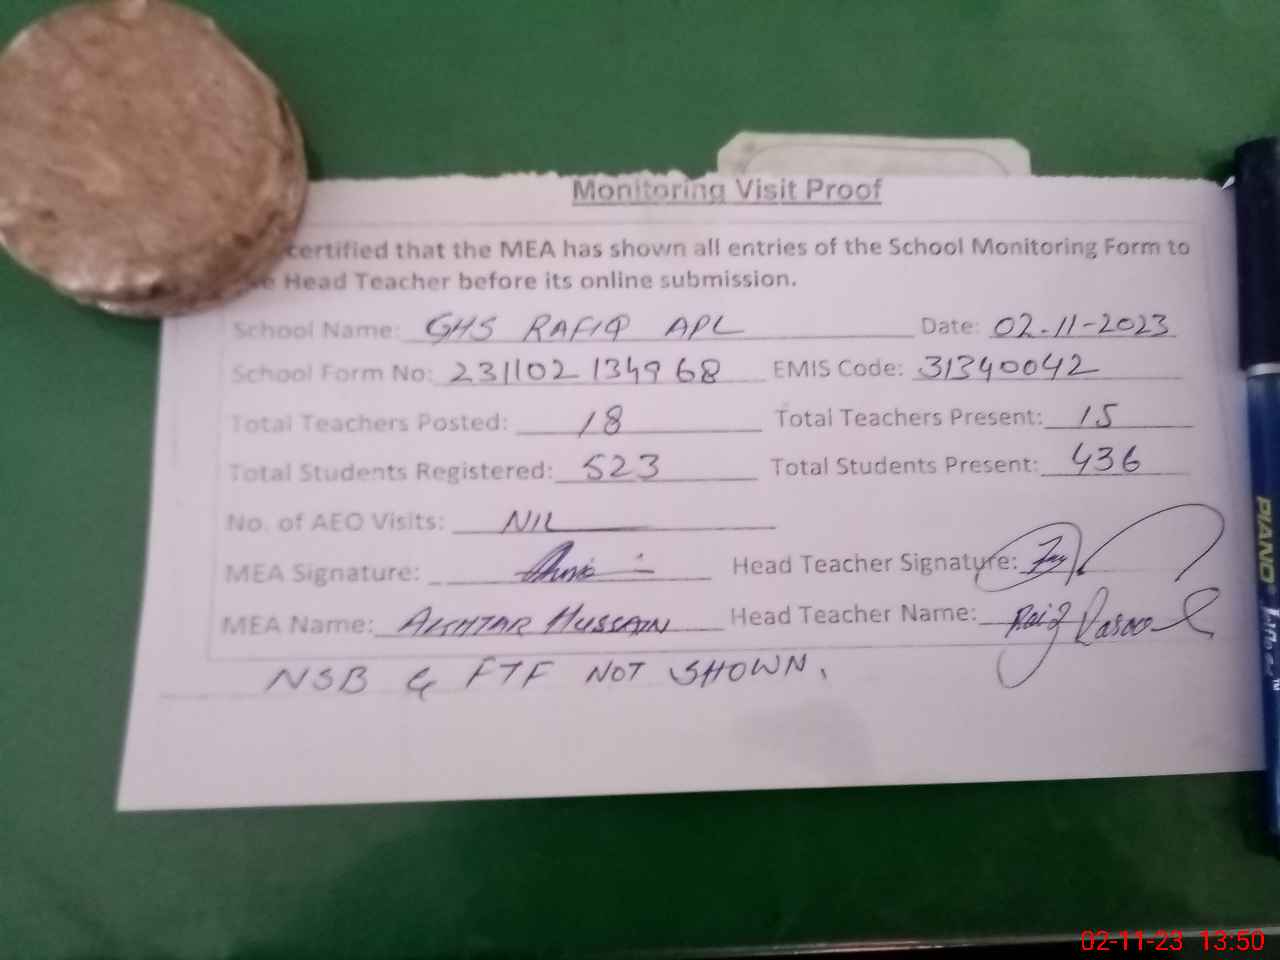 Monitoring Visit Proof
certified that the MEA has shown all entries of the School Monitoring Form to
Head Teacher before its online submission.
School Name: GHS RAFIQ APL Date: 02-11-2023
School Form No: 231102134968 EMIS Code: 31340042
Total Teachers Posted: 18 Total Teachers Present: 15
Total Students Registered: 523 Total Students Present: 436
No. of AEO Visits: NIL
MEA Signature: Head Teacher Signature:
MEA Name: AKHTAR HUSSAIN Head Teacher Name:
NSB & FTF NOT SHOWN.
PIANO
02-11-23 13:50